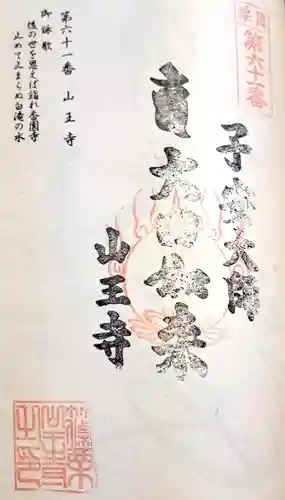 第六十一番
子大師
大日如来
山王寺
第六十一番 山王寺
御詠歌
後の世を思えば詣れ香園寺
止めて止まらぬ白滝の水